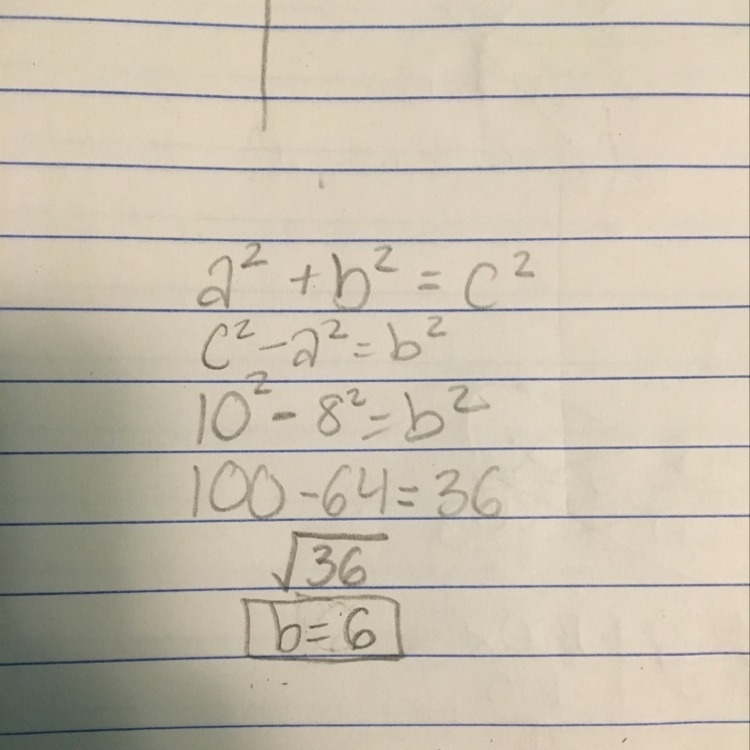 a² + b² = c²
c² - a² = b²
10² - 8² = b²
100 - 64 = 36
√36
b = 6